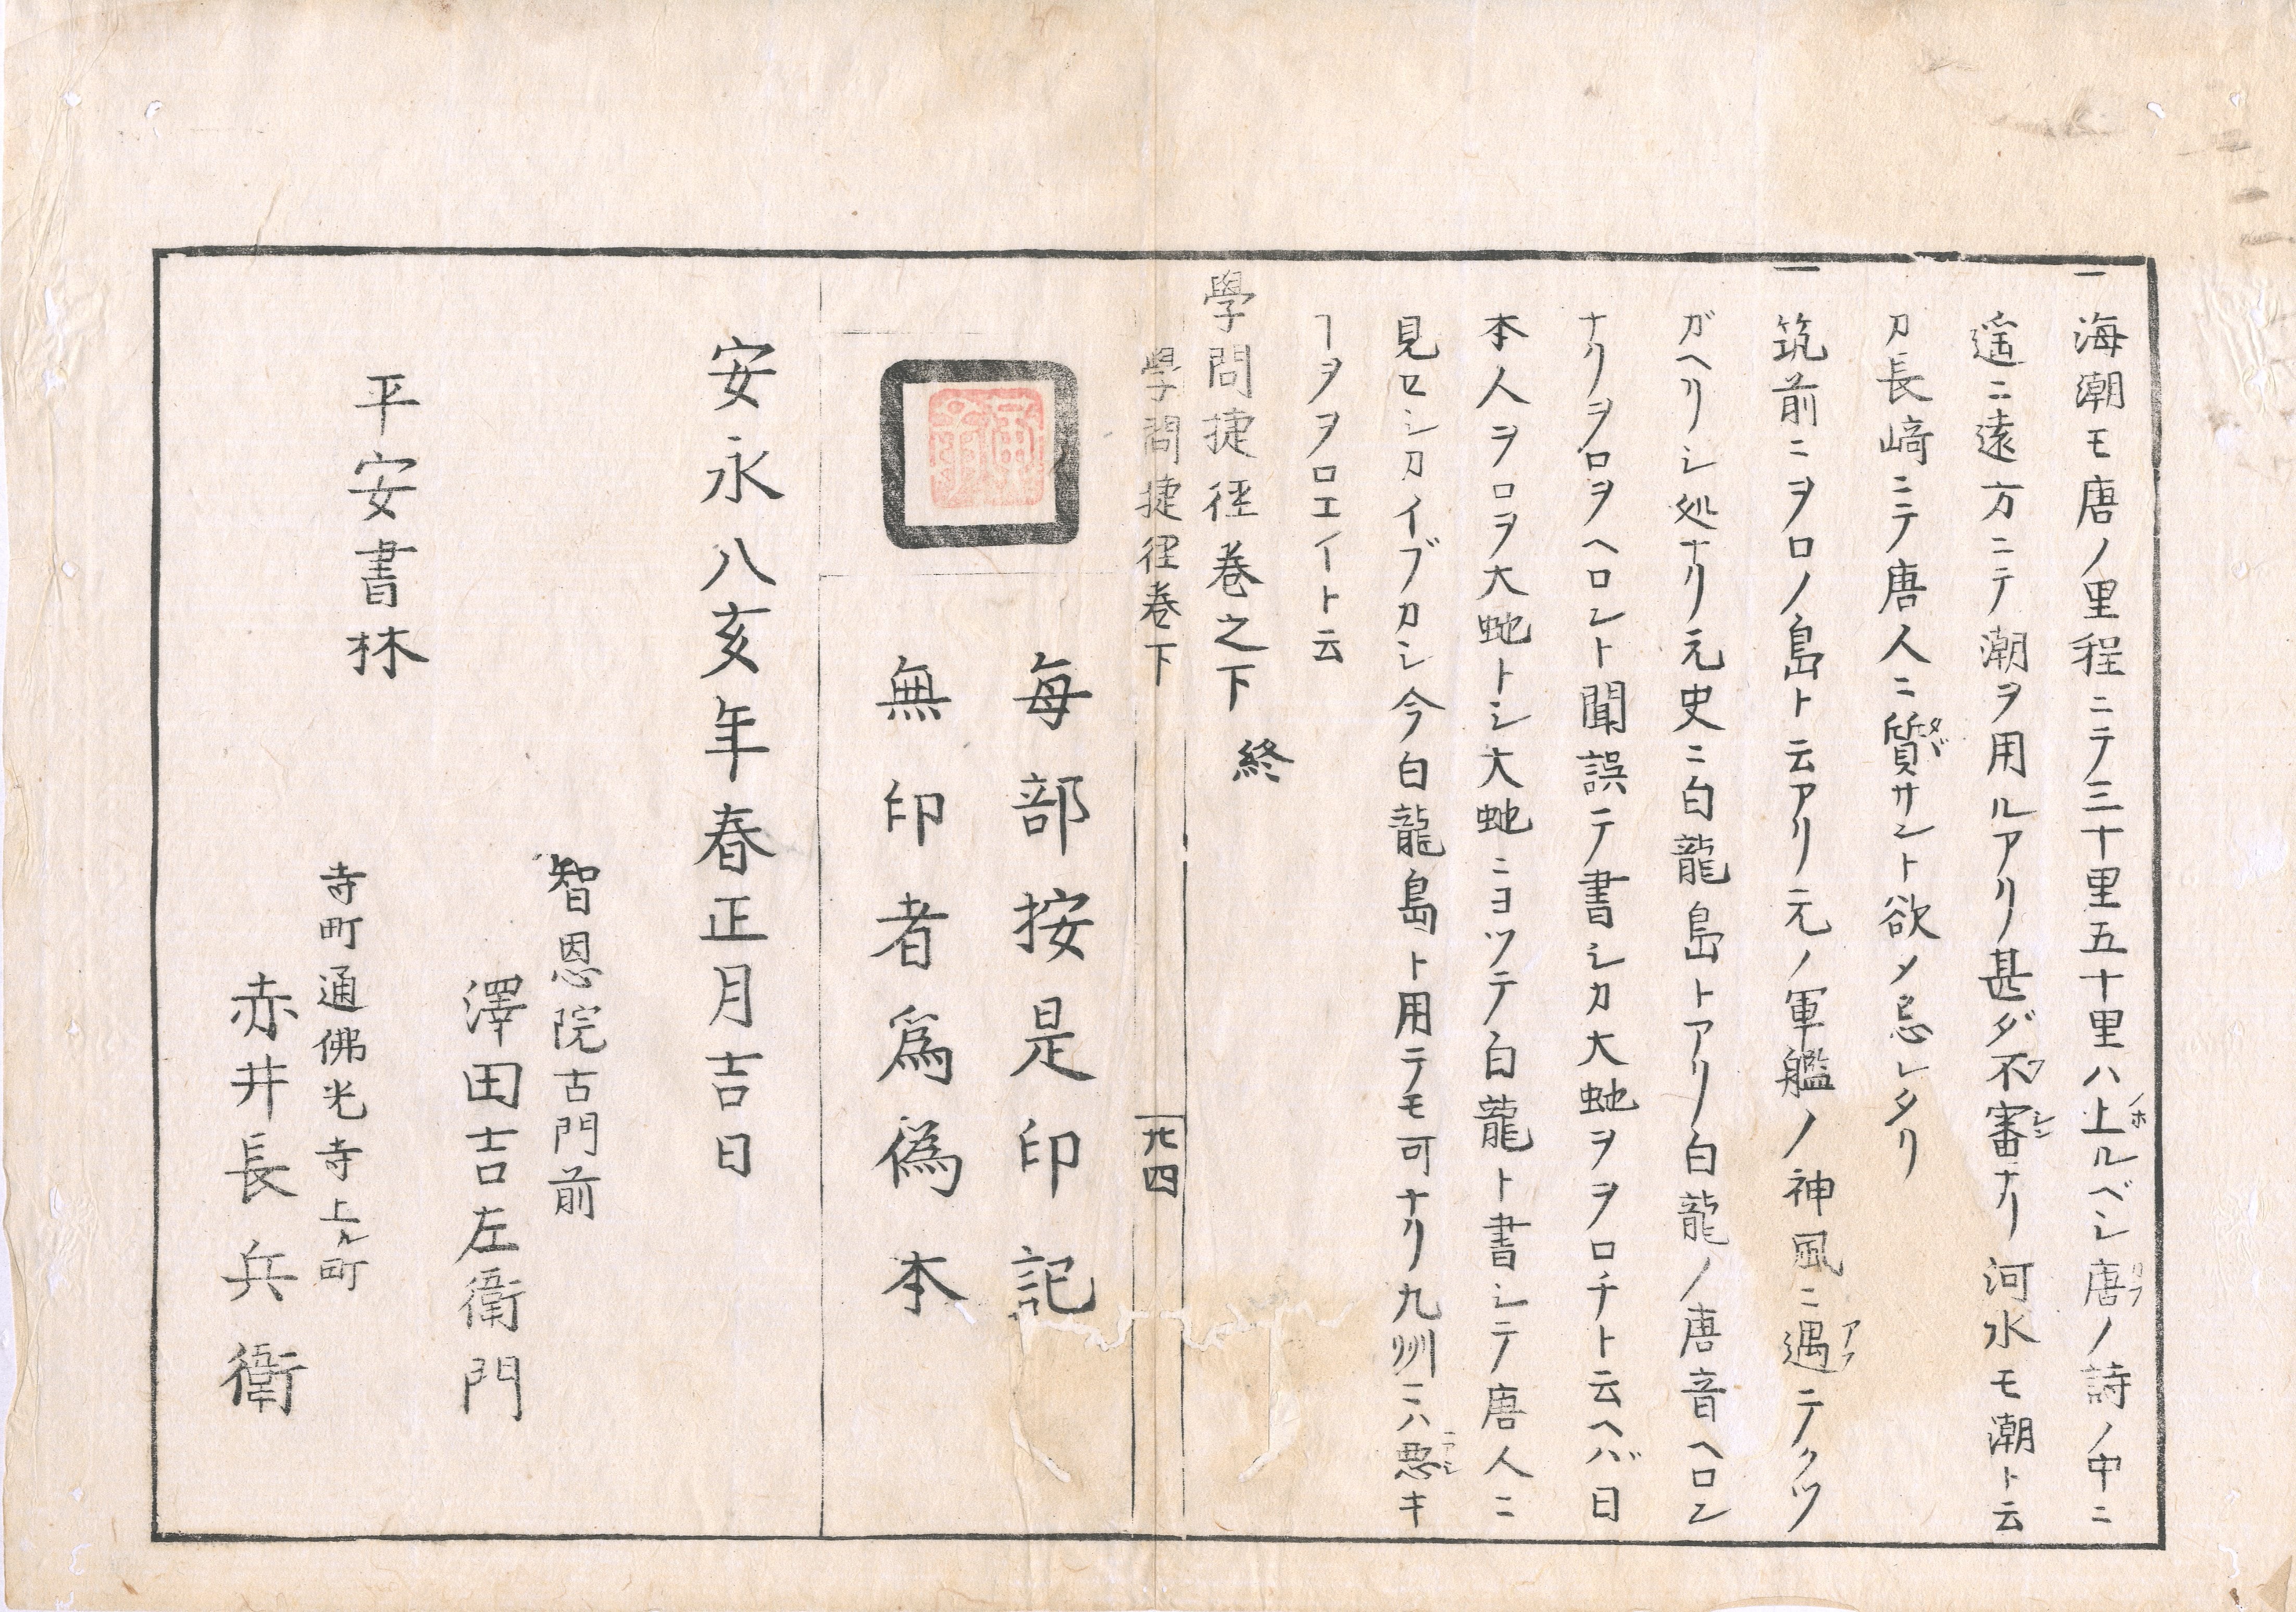 一海潮モ唐ノ里程ニテ三十里五十里ハ上ルベシ唐ノ詩ノ中ニ
遥ニ遠方ニテ潮ヲ用ルアリ甚ダ不審ナリ河水モ潮ト云
カ長﨑ニテ唐人ニ質サント欲メ忌レタリ
一筑前ニヲロノ島ト云アリ元ノ軍艦ノ神風ニ遇テクツ
ガヘリシ処ナリ元史ニ白龍島トアリ白龍ノ唐音ヘロン
ナリヲロヲヘロント聞誤テ書シカ大虵ヲヲロチト云ヘバ日
本人ヲロヲ大虵トシ大虵ニヨツテ白龍ト書シテ唐人ニ
見セシカイブカシ今白龍島ト用テモ可ナリ九州ニハ悪キ
ヿヲヲロエイト云
學問捷徑巻之下 終
學問捷徑巻下
廿四
每部按是印記
無印者爲僞本
安永八亥年春正月吉日
智恩院古門前
澤田吉左衛門
平安書林
寺町通佛光寺上ル町
赤井長兵衛